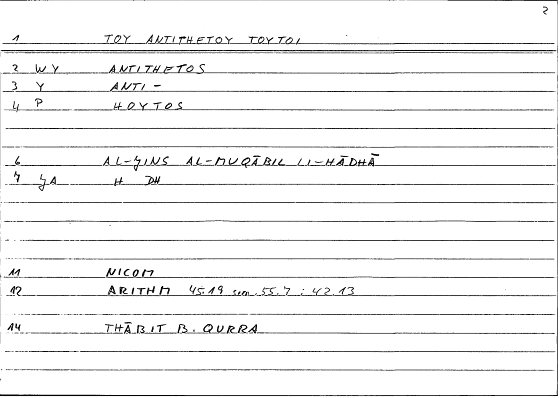 2
1 TOY ANTITHETOY TOYTOI
2 WY ANTITHETOS
3 Y ANTI -
4 P HOYTOS
6 AL-GINS AL-MUQĀBIL LI-HĀDHĀ
7 GA H DH
11 NICOM
12 ARITHM 45.19 sem. 55.7 : 42.13
14 THĀBIT B. QURRA